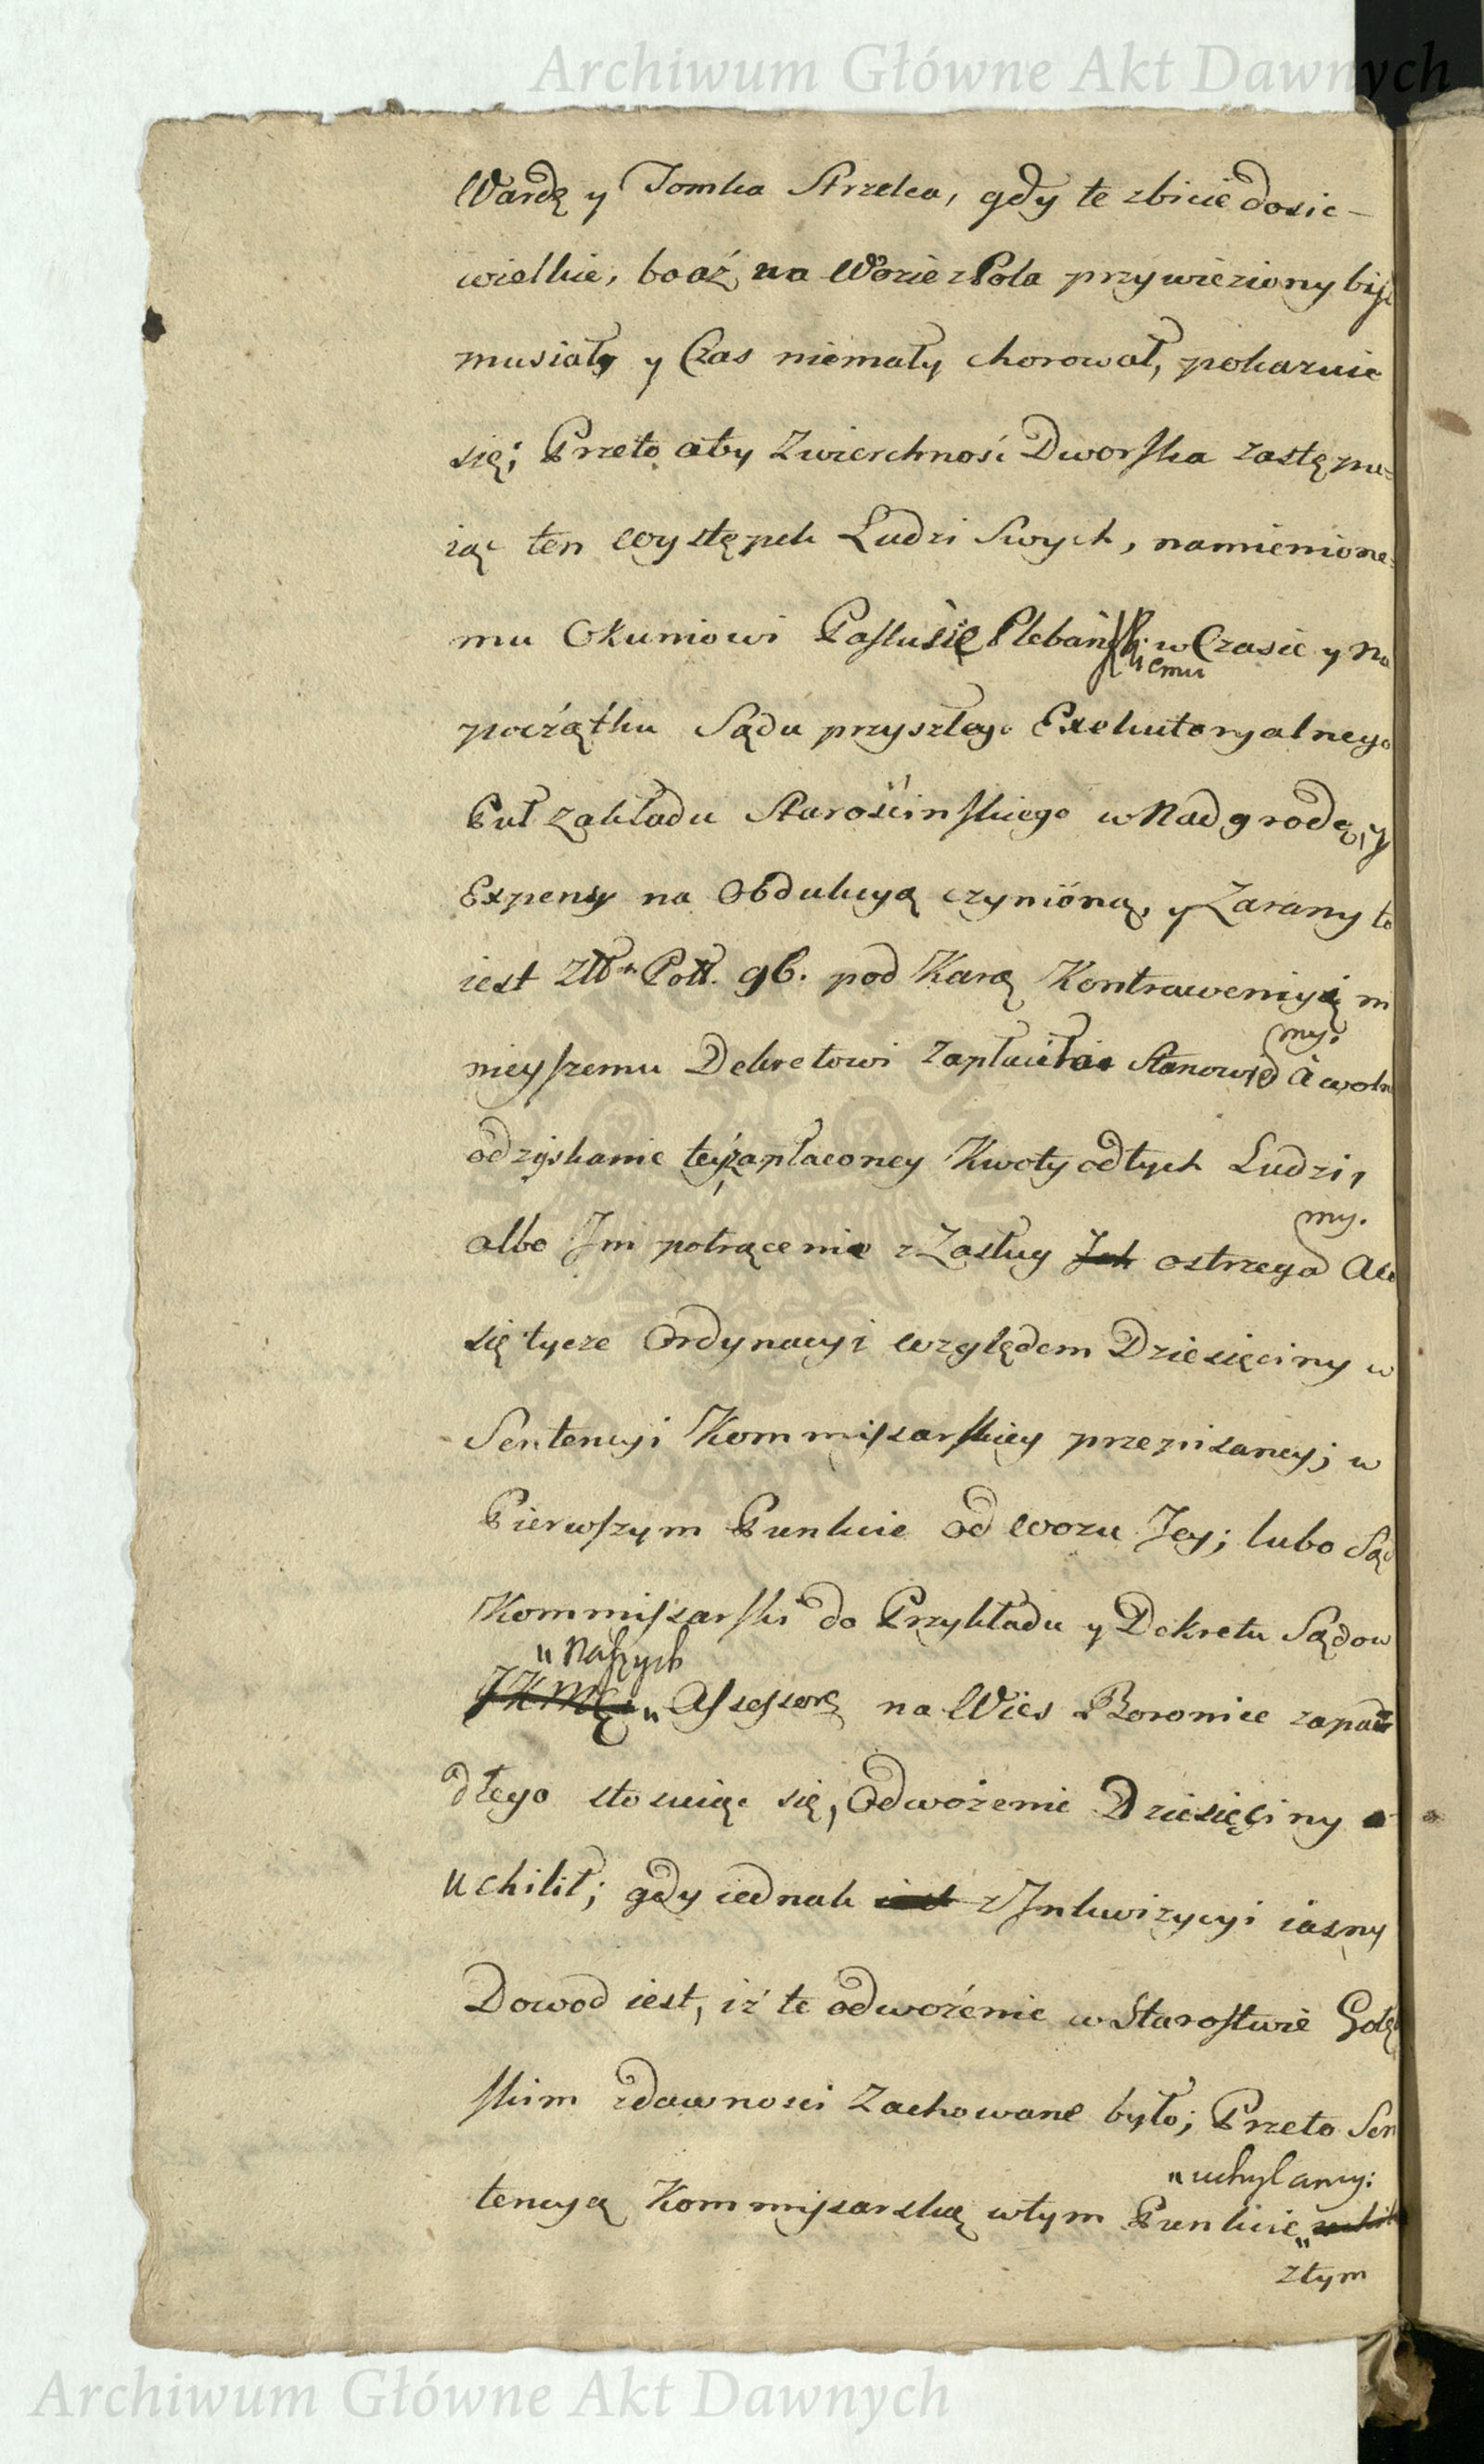 Archiwum Główne Akt Dawnych
Wardę y Tomka Strzelca, gdy te zbicie dosic-
wielkie, bo aż na Wozie z Pola przywieziony byc
musiał, y Czas niemały chorował, pokazuie
się; Przeto aby Zwierchność Dworska zastępu=
iąc ten występek Ludzi Swych, namienione=
mu Okuniowi Pastusię Plebańskiemu w Czasie y na
początku Sądu przyszłego Exekutoryalnego
Puł Zakładu Starościnskiego w Nadgrodę, y
Expensy na Obdukcyą czynioną, y Zarany to
iest Złł. Poll. 96. pod Karą Kontrawencyi ni
nieyszemu Dekretowi zapłaciła Stanowiemy. A wolne
odzyskanie teyże zapłaconey Kwoty od tych Ludzi,
albo Im potrącenie z Zasług Ich ostrzegamy. A co
się tycze Ordynacyi względem Dziesięciny w
Sentencyi Kommissarskiey przepisaney; w
Pierwszym Punkcie od wozu Jey; lubo Sąd
Kommissarski do Przykładu y Dekretu Sądow
" Naszych
JKMCi " Assessorę na Wieś Boronice zapa
dłego stosuiąc się, Odwożenie Dziesięciny
uchilił; gdy iednak iest z Inkwizycyi iasny
Dowod iest, iż te odwożenie w Starostwie Gołę
skim zdawnosci Zachowane było; Przeto Sen
tencyą Kommissarską w tym Punkcie " uchylamy:
z tym
Archiwum Główne Akt Dawnych